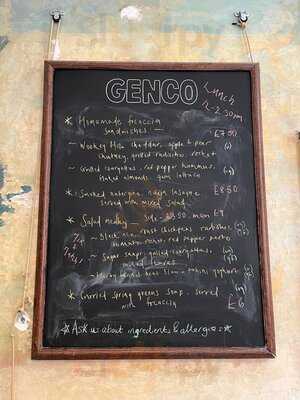 GENCO
Lunch
12-2.30pm
* Homemade focaccia
sandwiches — £7.00
~ Wookey Hole cheddar, apple + pear
chutney, grilled radicchio, rocket (v)
~ Grilled courgettes, red pepper hummus,
flaked almonds, gem lettuce
* Smoked aubergine, ricotta lasagne £8.50
served with mixed salad
* Salad medley — side £3.50, main £9
~ Black rice, roast chickpeas, radishes,
red pepper pesto
~ Sugar snaps, grilled courgettes,
mixed leaves
slaw - tahini yoghurt
* Curried spring greens soup, served
with focaccia £6
* Ask us about ingredients & allergies *